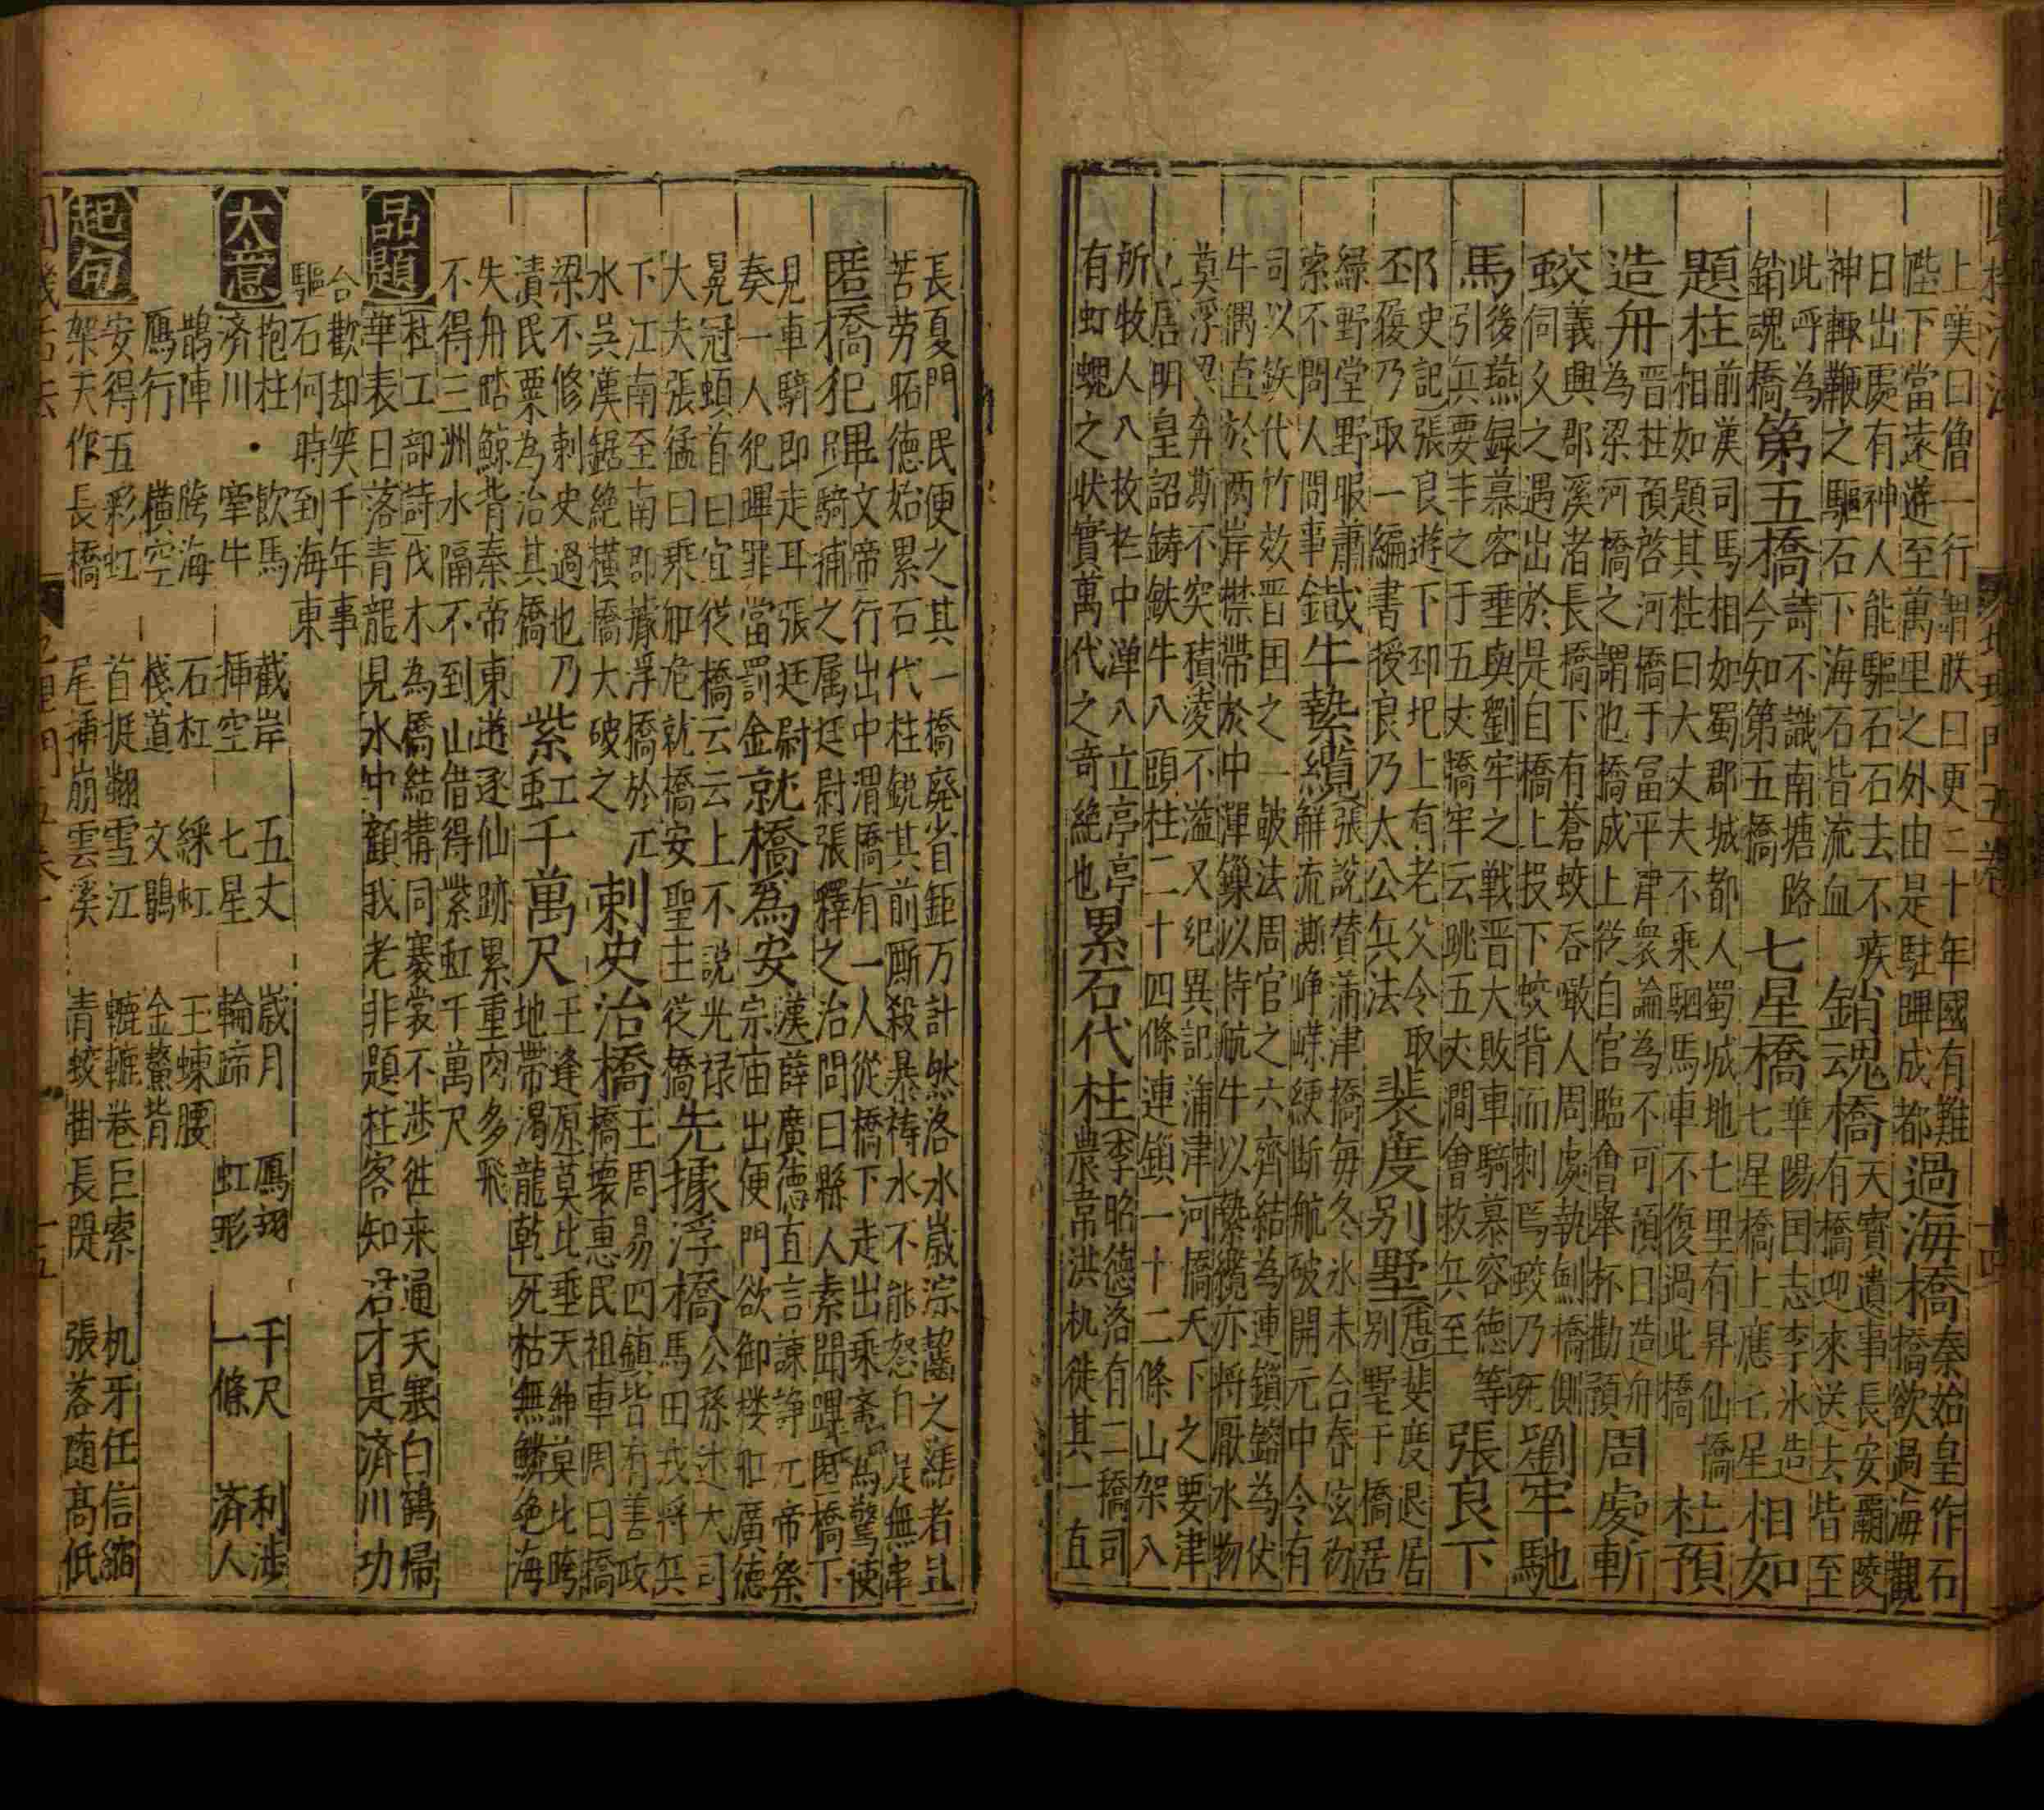 上嘆曰魯一行謂朕曰更二十年國有難
陛下當遠遊至萬里之外由是駐蹕成都
過海橋
秦始皇作石
橋欲過海觀
日出處有神人能驅石石去不疾
神輙鞭之驅石下海石皆流血
銷魂橋
天寶遺事長安霸陵
有橋迎來送去皆至
此呼為
銷魂橋
第五橋
詩不識南塘路
今知第五橋
七星橋
華陽囯志李氷造
七星橋上應七星
相如
題柱
前漢司馬相如蜀郡城都人蜀城地七里有昇仙橋
相如題其柱曰大丈夫不乘駟馬車不復過此橋
杜預
造舟
晋杜預啓河橋于冨平津衆論為不可預曰造舟
為梁河橋之謂也橋成上從自官臨會舉杯勸預
周處斬
蛟
義興郡溪渚長橋下有蒼蛟吞噉人周處執劍橋側
伺乆之遇出於是自橋上投下蛟背而刺焉蛟乃死
劉牢馳
馬
後燕録慕容垂與劉牢之戰晋大敗車騎慕容德等
引兵要丰之于五丈橋牢云眺五丈澗會救兵至
張良下
邳
史記張良遊下邳圯上有老父令取
履乃取一編書授良乃太公兵法
裴度别墅
唐裴度退居
别墅于橋居
緑野堂野服蕭
索不問人間事
鐵牛縶纜
張説賛蒲津橋毎冬氷未合春冱初
解流澌崢嶸綆断航破開元中令有
司以鉄代竹效晋囯之一皷法周官之六齊結為連鎖鎔為伏
牛偶直於两岸襟帶於中潬鏁以持航牛以縶纜亦将厭水物
莫浮梁奔斯不突積凌不溢又纪異記蒲津河橋天下之要津
也唐明皇詔鋳鉄牛八頭柱二十四條連鎖一十二條山架八
所牧人八枚柱中潬八立亭亭
有虹蜺之状實萬代之竒絶也
累石代柱
李昭德洛有二橋司
農韋洪机徙其一直
長夏門民便之其一橋廢省鉅万計然洛水歲淙齧之繕者且
苦劳昭德始累石代柱銳其前厮殺暴涛水不能怒自是無患
匿橋犯蹕
文帝行出中渭橋有一人從橋下走出乘輿馬驚使
騎捕之属廷尉張釋之治問曰縣人素聞蹕匿橋下
見車騎即走耳張廷尉
奏一人犯蹕罪當罰金
就橋為安
漢薛廣德直言諫諍元帝祭
宗庙出便門欲御楼舡廣德
冕冠頓首曰宜從橋云云上不説光禄
大夫張猛曰乘舡危就橋安聖主從橋
先據浮橋
公孫述大司
馬田戎将兵
下江南至南郡據浮橋於江
水吳漢鋸絶横橋大破之
刺史治橋
王周易四鎮皆有善政
橋壊惠民祖車周曰橋
梁不修刺史過也乃
漬民粟為治其橋
紫垂千萬尺
王逢原莫比垂天紳莫比跨
地帶渴龍乾死枯無鱗绝海
失舟䀨鯨背秦帝東遊逐仙跡累重肉多飛
不得三洲水隔不到山借得紫虹千萬尺
品題
杜工部詩伐木為橋結構同褰裳不涉徃来通天寒白鶴帰
華表日落青龍見水中顧我老非題柱客知君才是済川功
合歡却笑千年事
驅石何時到海東
大意
抱柱 飲馬 截岸 五丈 歲月 鴈翊 千尺 利涉
済川 牽牛 揷空 七星 輪蹄 虹形 一條 済人
鵲陣 跨海 石杠 綵虹 玉蝀腰
鴈行 横空 棧道 文鷁 金鰲背
起句
安得五彩虹 首挺翻雪江 轆轤巻巨索 机牙任信縮
架天作長橋 尾揷崩雲溪 青蛟掛長隄 張落随髙低